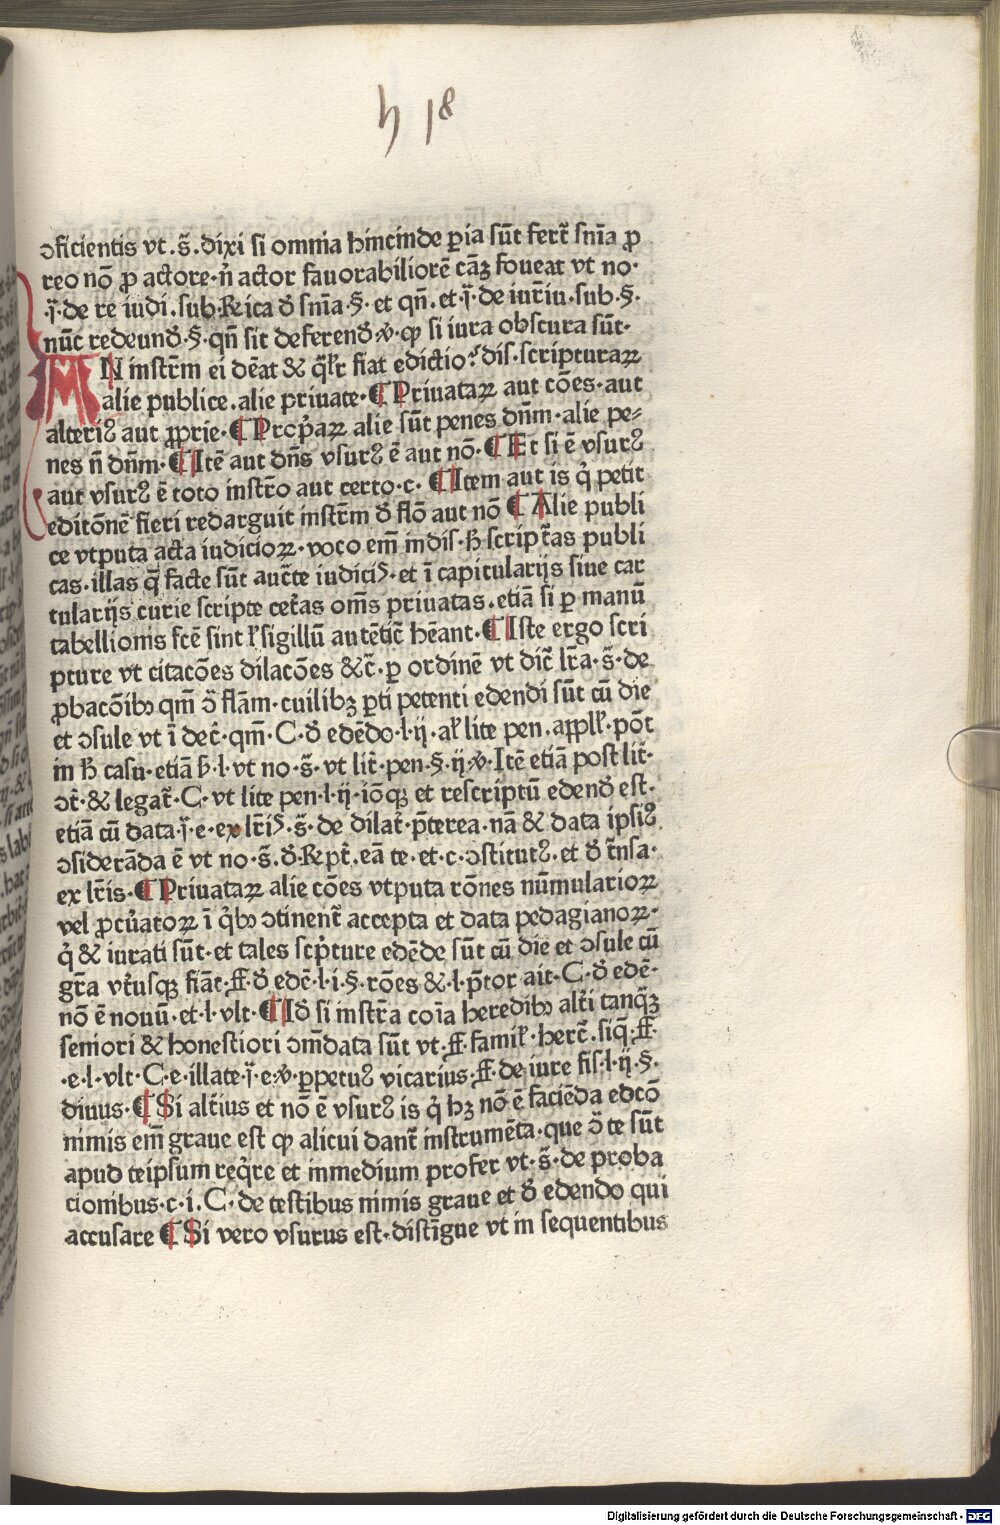 h 18
ↄficientis vt.s̄.dixi si omnia hincinde ꝑia sūt fert̄ sn̄ia ꝓ
reo nō ꝓ actore·n̄ actor fauorabiliorē cāꝫ foueat vt no·
·j̄·de re iudi.sub·Rica đ sn̄ia·§·et qn̄.et·j̄·de iur̄iu·sub·§·
nūc redeund̄·§·qn̄ sit deferend̄·v̓·ꝙ si iura obscura sūt·
MN instr̄m ei dēat & q̄lr̄ fiat edictio·dis·scripturaꝝ
alie publice.alie priuate·¶ Priuataꝝ aut cōes·aut
alteriꝰ aut ꝓprie·¶ Prop̓aꝝ alie sūt penes dn̄m·alie pe⸗
nes n̄ dn̄m·¶ Itē aut dn̄s vsurꝰ ē aut nō·¶ Et si ē vsurꝰ
aut vsurꝰ ē toto instr̄o aut certo·c·¶ Item aut is q̓ petit
editōnē fieri redarguit instr̄m đ flō aut nō ¶ Alie publi
ce vtputa acta iudicioꝝ·voco em̄ indis·ħ script̄as publi
cas·illas q̄ facte sūt auct̄te iudicis·et ī capitularijs siue car
tularijs curie scripte cet̄as om̄s priuatas.etiā si ꝑ manū
tabellionis fcē sint ł sigillū autētic̄ hēant·¶ Iste ergo scri
pture vt citacōes dilacōes &c̄·ꝑ ordinē vt dic̄ lr̄a·s̄·de
ꝓbacōibꝫ qm̄ ↄ̄ flām·cuilibꝫ ꝑti petenti edendi sūt cū die
et ↄsule vt ī dec̄·qm̄·C·đ edēdo·l·ij·ał lite pen.aꝓpll̄·pōt
in ħ casu·etiā ƀ·l·vt no·s̄·vt lit̄·pen·§·ij·v̓·Itē etiā post lit̄·
ↄt̄·& legat̄·C·vt lite pen·l·ij·iōqꝫ et rescriptū edend̄ est·
etiā cū data·j̄·e·ex lr̄is·s̄·de dilat̄·p̄terea·nā & data ipsiꝰ
ↄsiderāda ē vt no·s̄·đ·Rept̄·eā te·et·c·ↄstitutꝰ·et đ t̄nsa·
ex lr̄is·¶ Priuataꝝ alie cōes vtputa rōnes nūmularioꝝ
vel ꝓcūatoꝝ ī q̓bꝫ ↄtinent̄ accepta et data pedagianoꝝ·
q̓ & iurati sūt·et tales scp̓ture edēde sūt cū die et ↄsule cū
gr̄a vt̄usqꝫ fiāt·ff·đ edc̄·l·i·§·rōes &·l·p̄tor ait·C·đ edē·
nō ē nouū·et·l·vlt·¶ Id̄ si instr̄a coīa heredibꝫ alt̄i tanq̄ꝫ
seniori & honestiori ↄm̄data sūt vt·ff·famil̄·herc̄·siq̄·ff·
·e·l·vlt·C·e·illate·j̄·e·v̓·ꝑpetuꝰ vicarius·ff·de iure fis·l·ij·§·
diuus·¶ Si alt̄ius et nō ē vsurꝰ is q̓ hꝫ nō ē faciēda edcō
nimis em̄ graue est ꝙ alicui dant̄ instrumēta·que ↄ̄ te sūt
apud teipsum req̓re et inmedium profer vt·s̄·de proba
cionibus·c·i·C·de testibus nimis graue et đ edendo qui
accusare ¶ Si vero vsurus est·distīgue vt in sequentibus
Digitalisierung gefördert durch die Deutsche Forschungsgemeinschaft · DFG